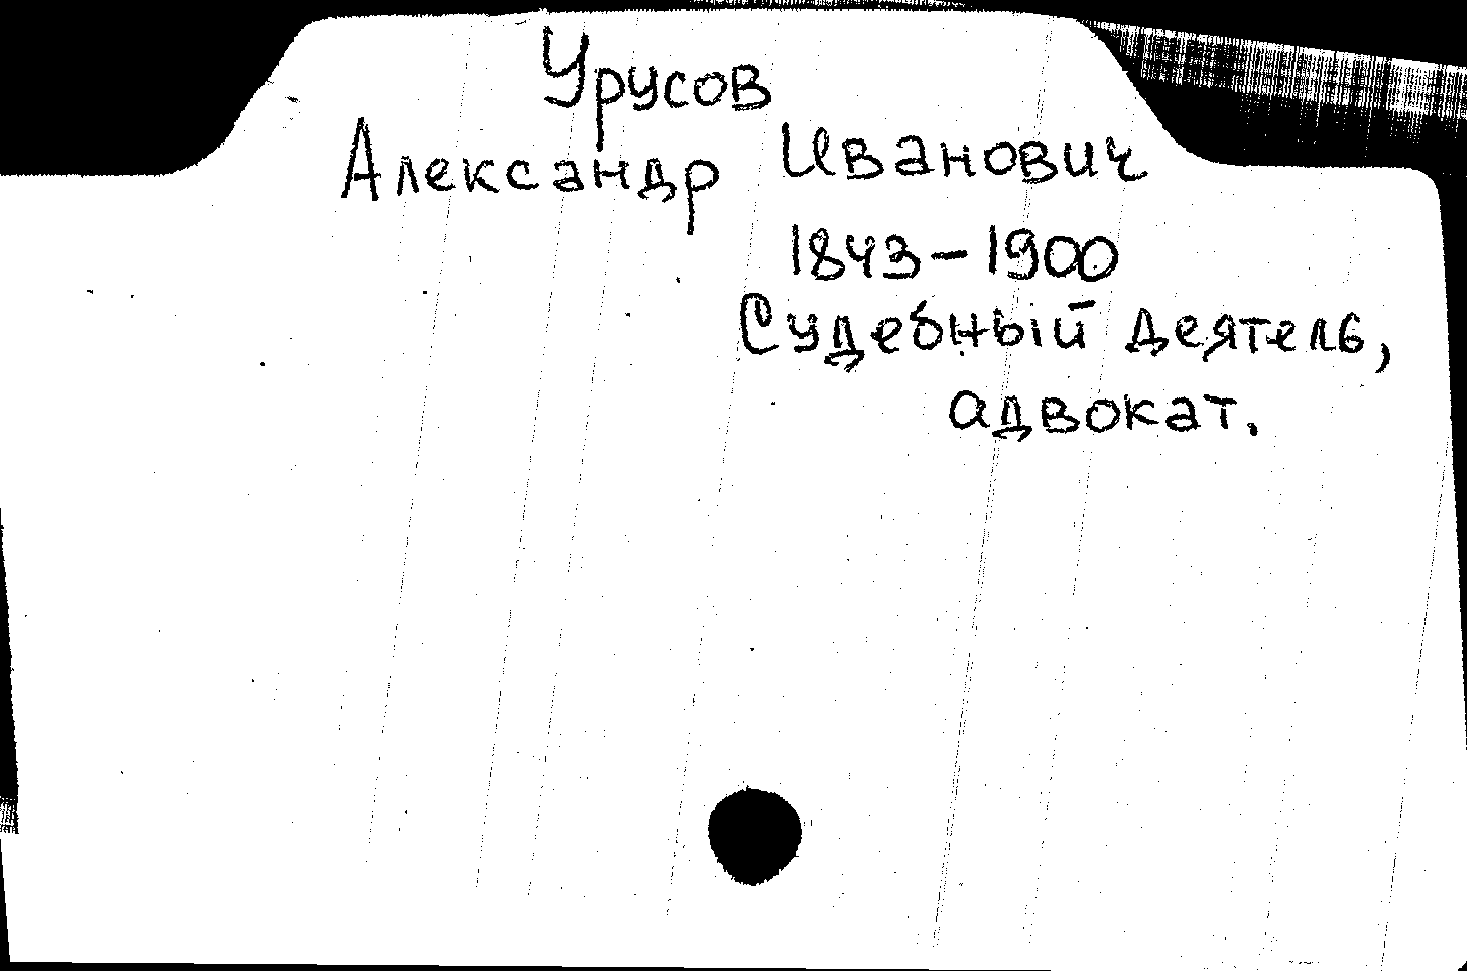 Урусов
Александр Иванович
1843-1900
Судебный деятель,
адвокат.